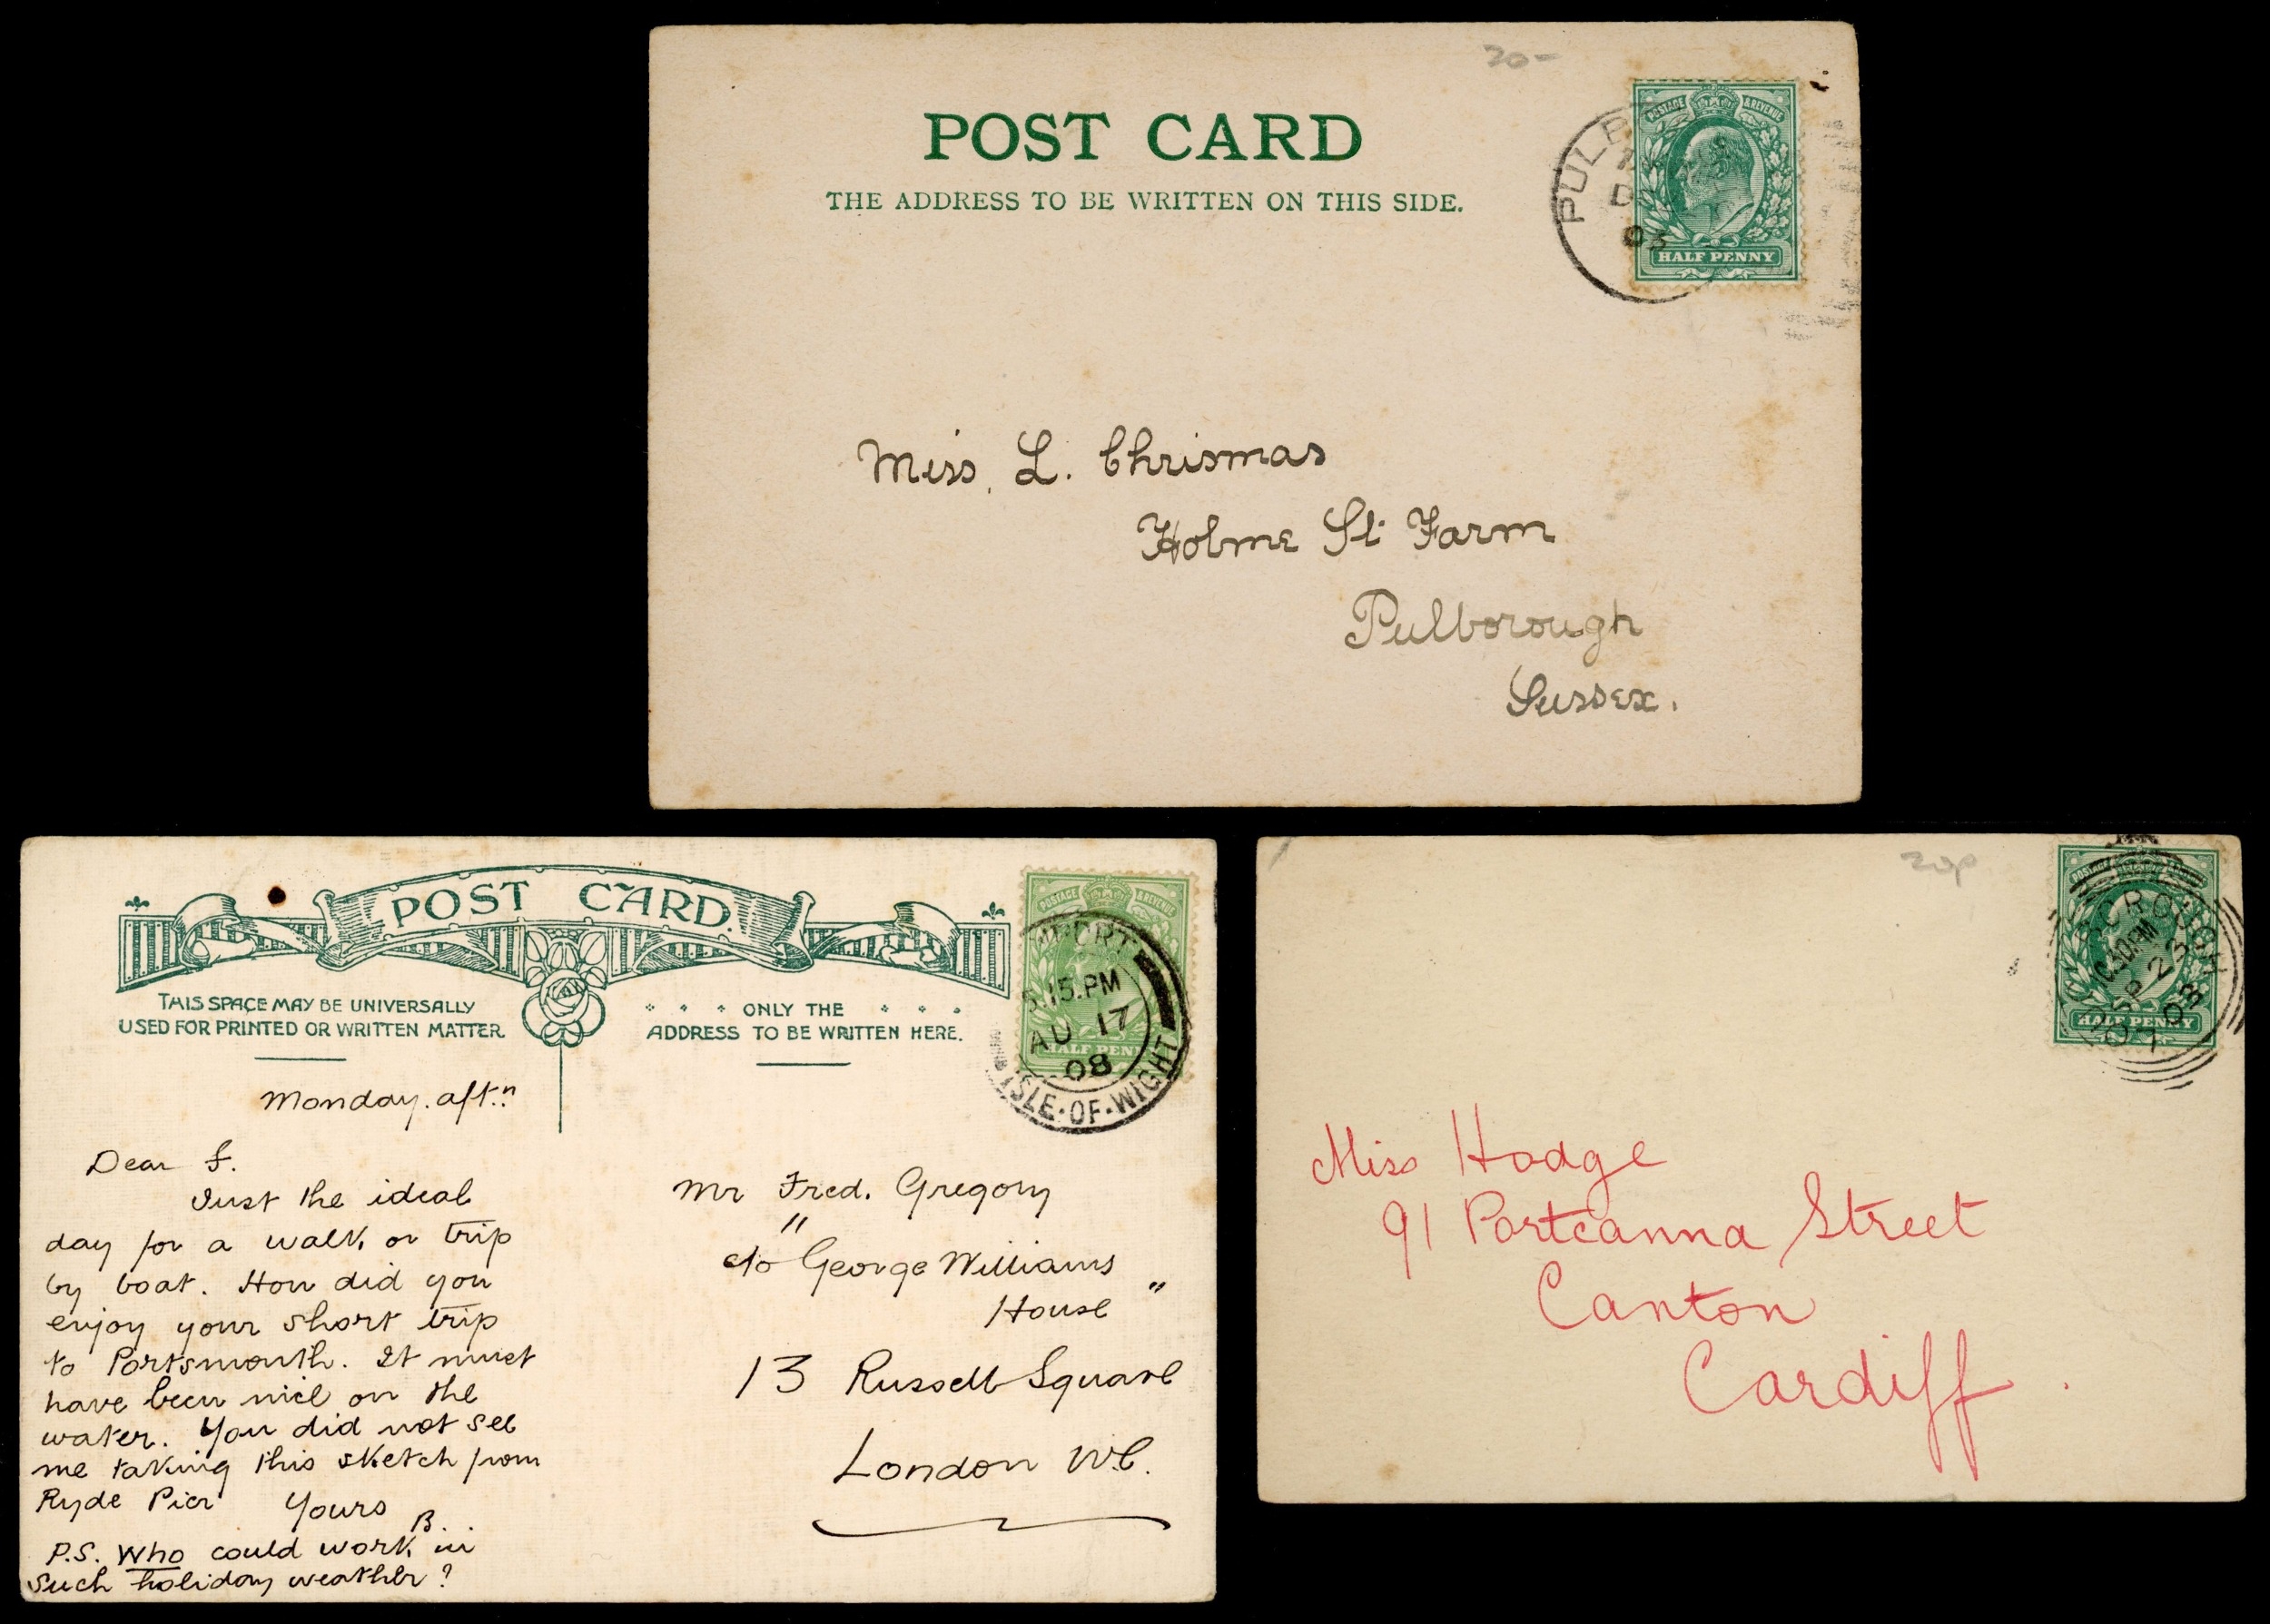 20-
POST CARD
THE ADDRESS TO BE WRITTEN ON THIS SIDE.
POSTAGE & REVENUE
HALF PENNY
PULB
03
Miss. L. Chrismas
Holme St Farm
Pulborough
Sussex.
POST CARD.
THIS SPACE MAY BE UNIVERSALLY
USED FOR PRINTED OR WRITTEN MATTER.
ONLY THE
ADDRESS TO BE WRITTEN HERE.
POSTAGE & REVENUE
HALF PEN
5.15.PM
AU 17
08
ISLE·OF·WIGHT
Monday. aft.n
Dear F.
Just the ideal
day for a walk, or trip
by boat. How did you
enjoy your short trip
to Portsmouth. It must
have been nice on the
water. You did not see
me taking this sketch from
Ryde Pier Yours
B.
P.S. Who could work in
such holiday weather?
Mr Fred. Gregory
"
c/o George Williams
House "
13 Russell Square
London W.C.
20p
HALF PENNY
OROUGH
SP 23
03
Miss Hodge
91 Portcanna Street
Canton
Cardiff.